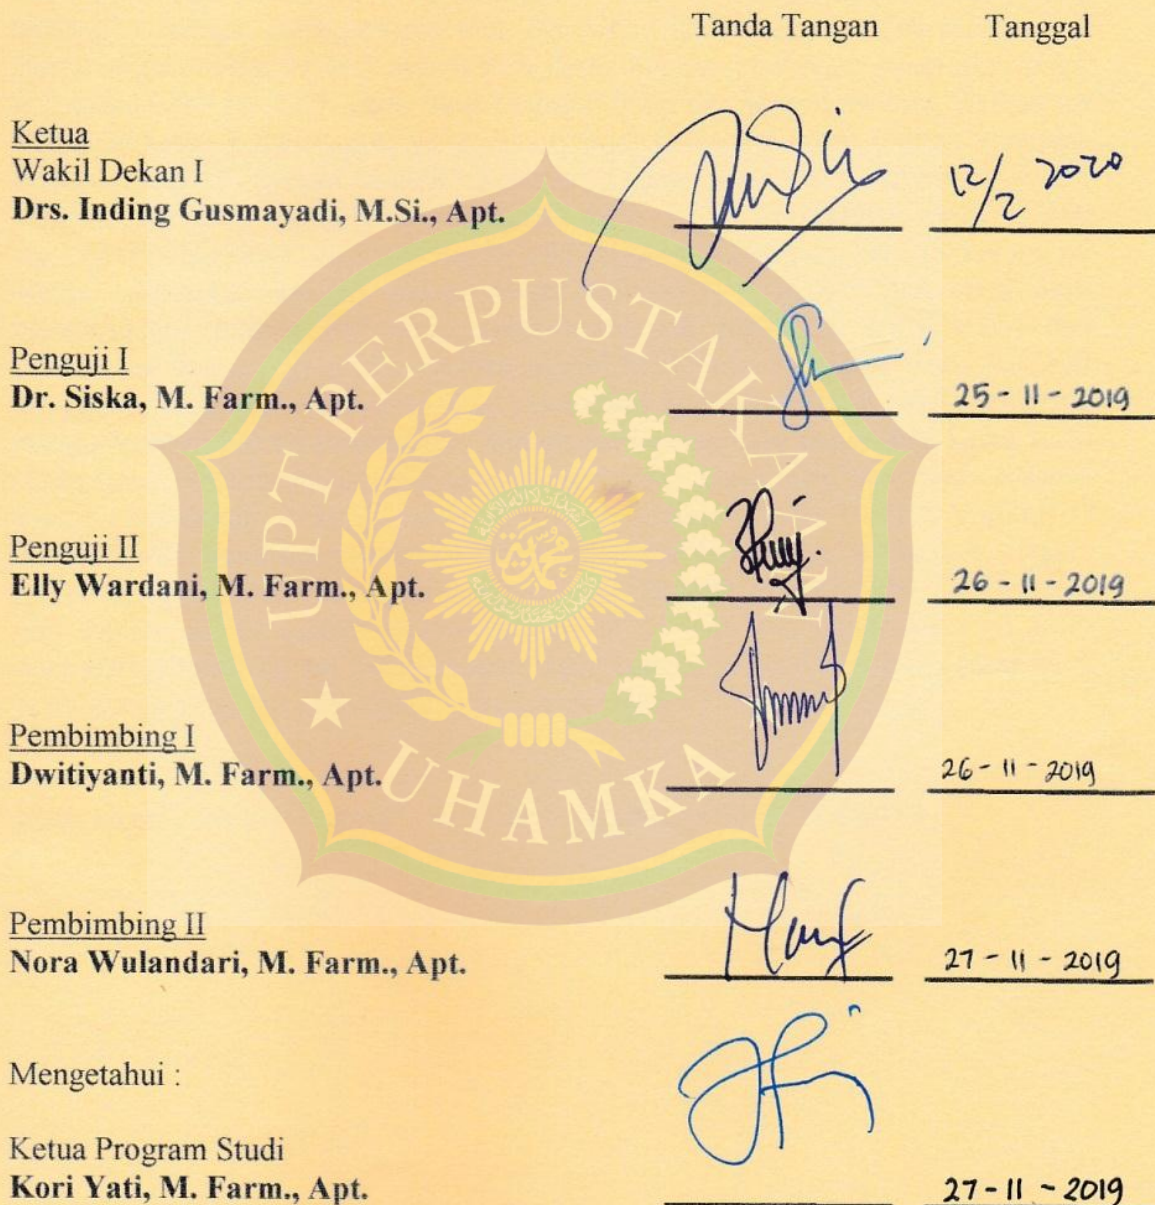 Tanda Tangan Tanggal
Ketua
Wakil Dekan I
Drs. Inding Gusmayadi, M.Si., Apt.
12/2 2020
Penguji I
Dr. Siska, M. Farm., Apt.
25 - 11 - 2019
Penguji II
Elly Wardani, M. Farm., Apt.
26 - 11 - 2019
Pembimbing I
Dwitiyanti, M. Farm., Apt.
26 - 11 - 2019
Pembimbing II
Nora Wulandari, M. Farm., Apt.
27 - 11 - 2019
Mengetahui :
Ketua Program Studi
Kori Yati, M. Farm., Apt.
27 - 11 - 2019
UPT PERPUSTAKAAN
UHAMKA